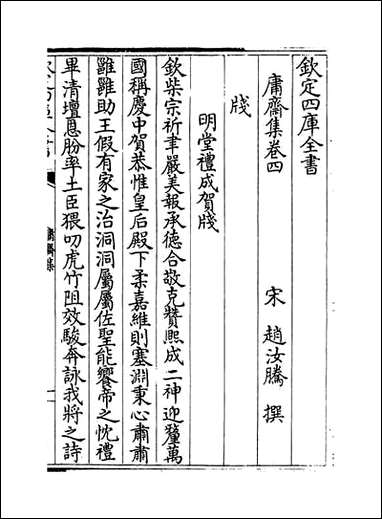 欽定四庫全書
庸齋集卷四
宋 趙汝騰 撰
牋
明堂禮成賀牋
欽柴宗祈聿嚴美報承德合敬克贊熙成二神迎釐萬
國稱慶中賀恭惟皇后殿下柔嘉維則塞淵秉心肅肅
雝雝助王假有家之治洞洞屬屬佐聖能饗帝之忱禮
畢清壇恩肦率土臣猥叨虎竹阻效駿奔詠我將之詩
庸齋集